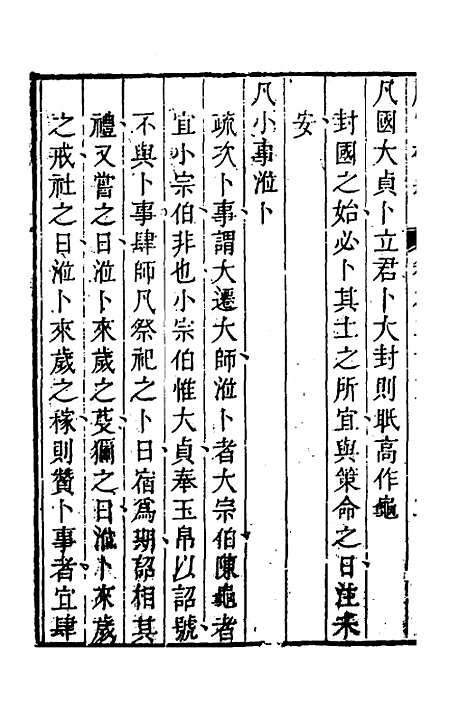 凡國大貞卜立君卜大封則眡高作龜
封國之始必卜其土之所宜與策命之日注未
安
凡小事涖卜
疏次卜事謂大遷大師涖卜者大宗伯陳龜者
宜小宗伯非也小宗伯惟大貞奉玉帛以詔號
不與卜事肆師凡祭祀之卜日宿為期詔相其
禮又嘗之日涖卜來歲之芟獮之日涖卜來歲
之戒社之日涖卜來歲之稼則贊卜事者宜肆